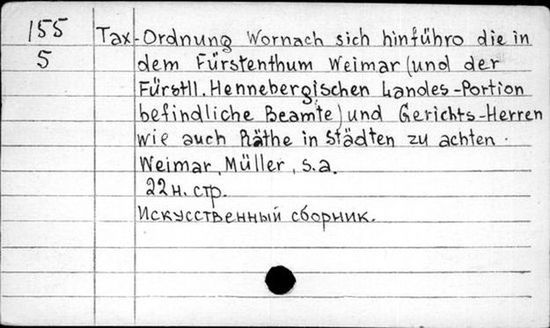 155 Tax-Ordnung Wornach sich hinführo die in
5 dem Fürstenthum Weimar (und der
Fürstl. Hennebergischen Landes-Portion
befindliche Beamte) und Gerichts-Herren
wie auch Räthe in Städten zu achten.
Weimar, Müller, s.a.
22 н. стр.
Искусственный сборник.